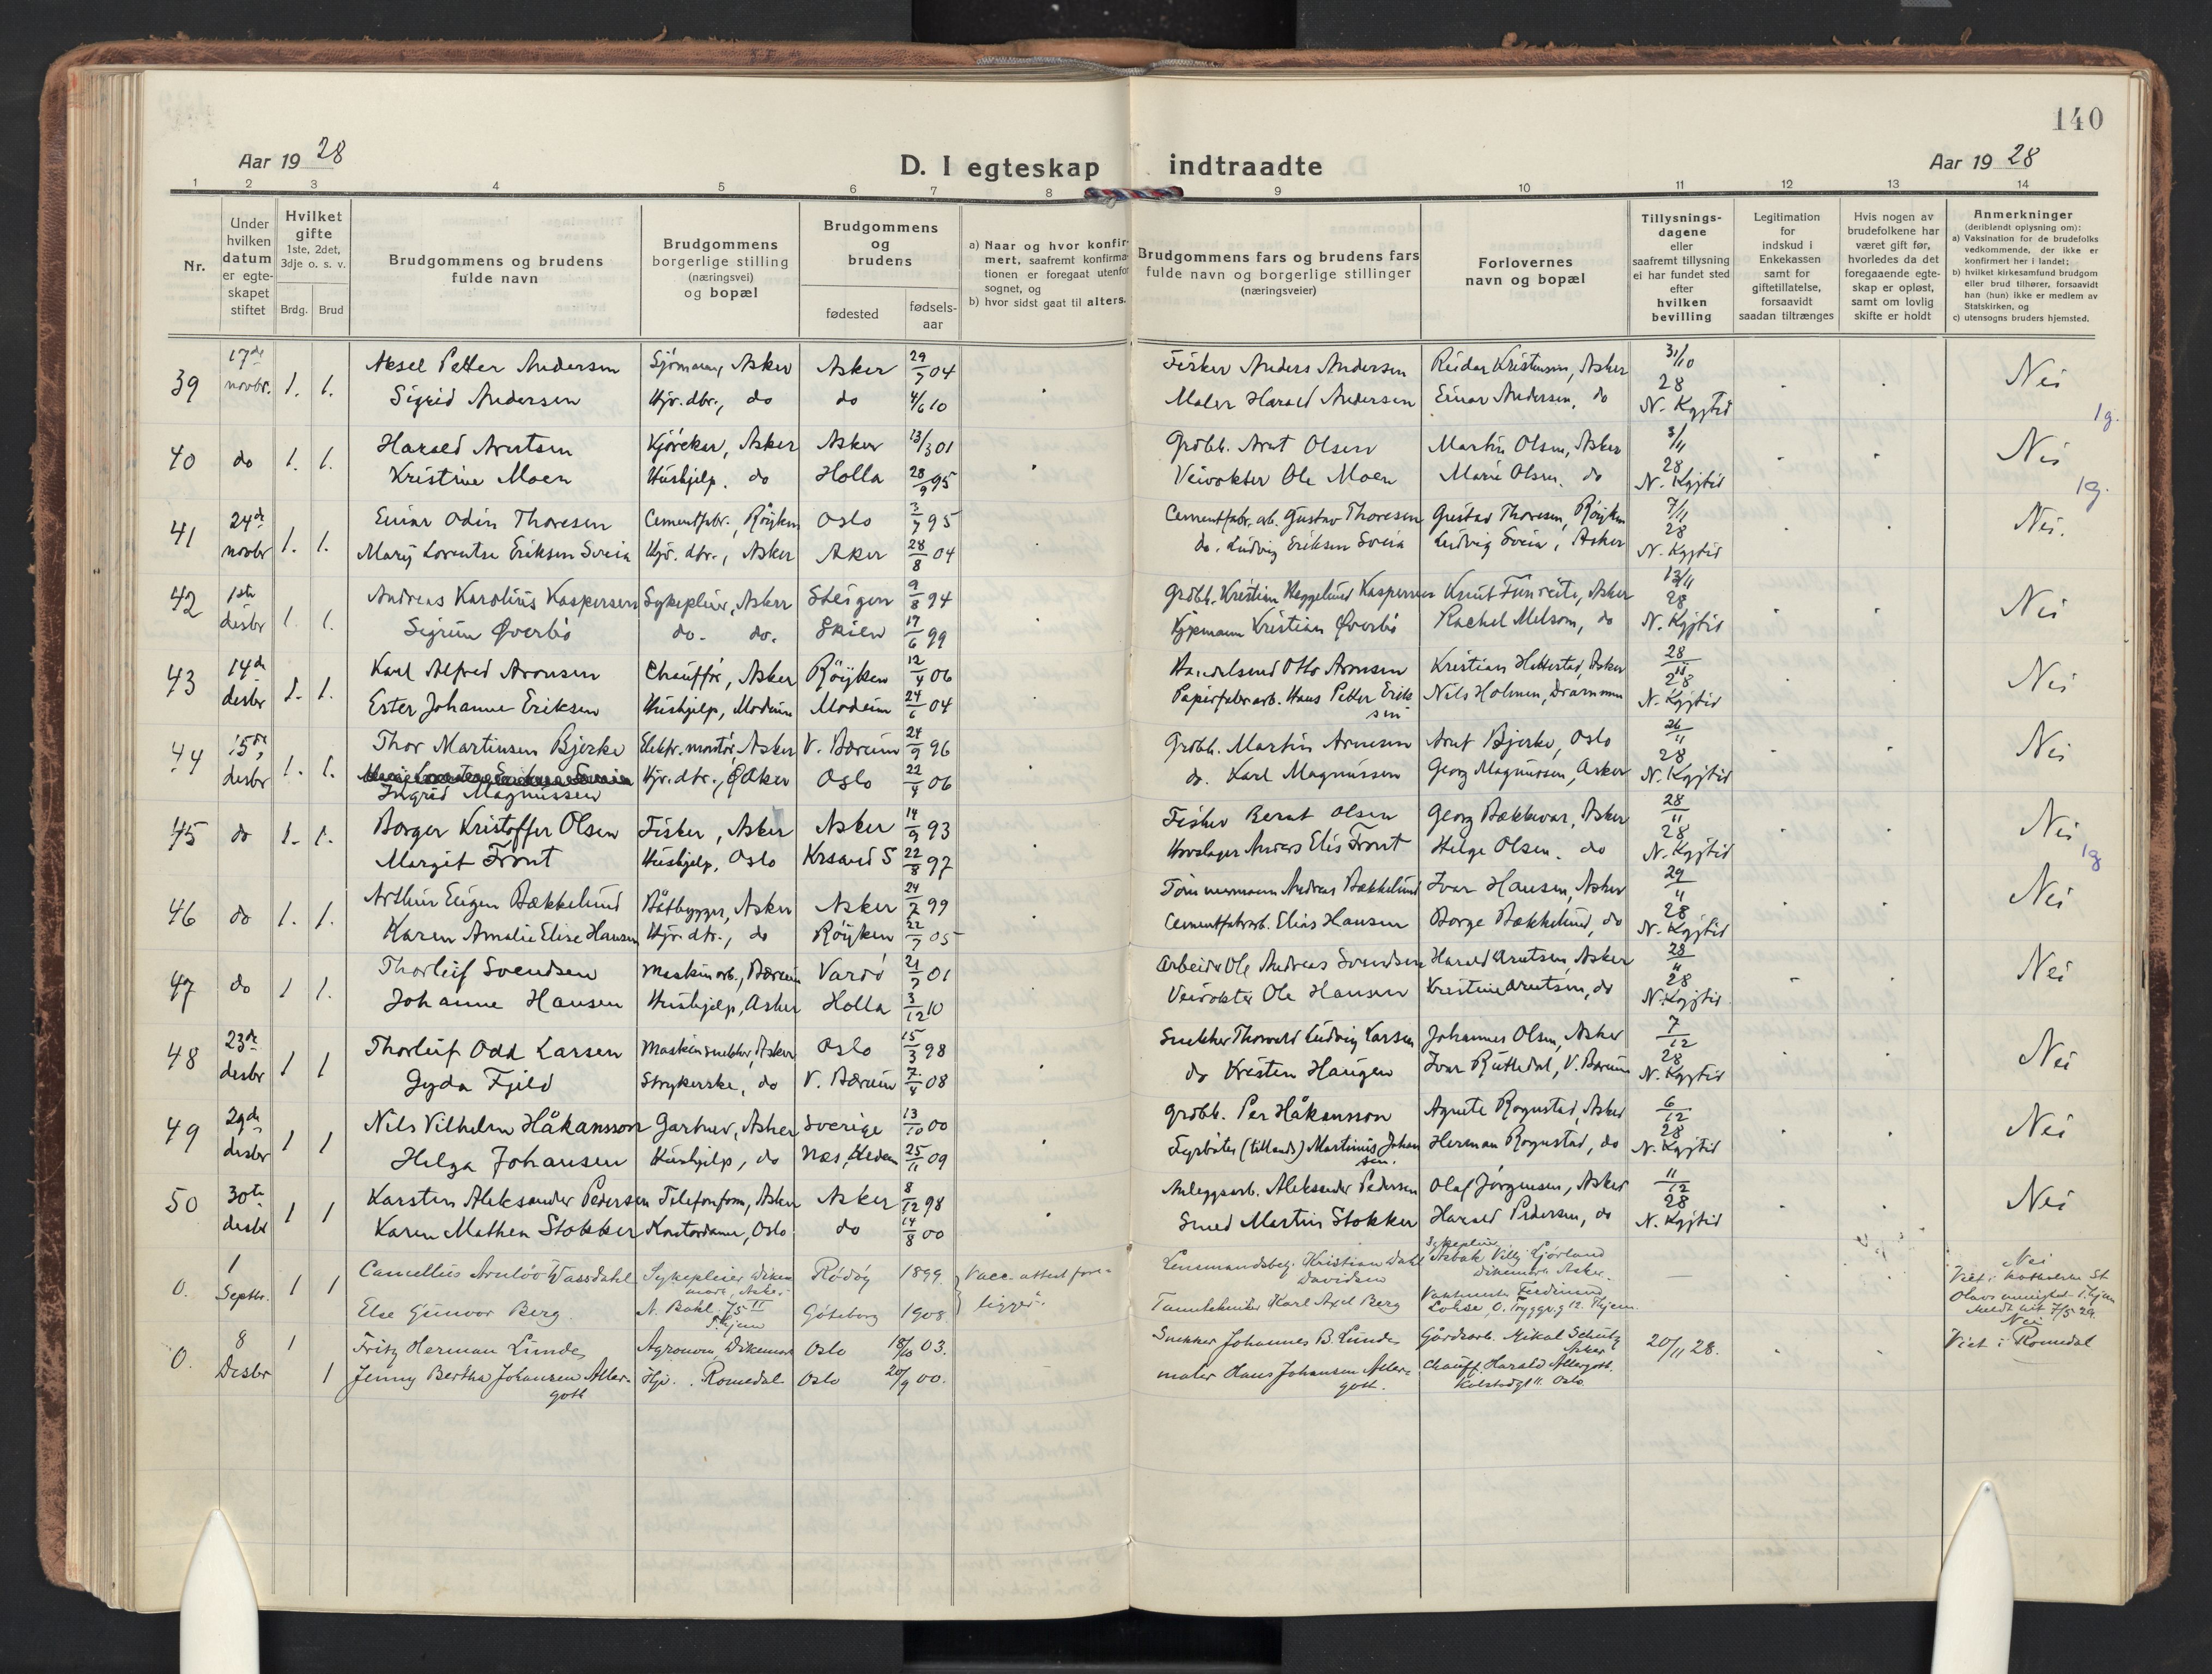 140
Aar 1928
D. I egteskap indtraadte
Aar 1928
1 2 3 4 5 6 7 8 9 10 11 12 13 14
Nr.
Under hvilken datum er egteskapet stiftet
Hvilket gifte 1ste, 2det, 3dje o. s. v.
Brdg. Brud
Brudgommens og brudens fulde navn
Brudgommens borgerlige stilling (næringsvei) og bopæl
Brudgommens og brudens
fødested
fødsels-aar
a) Naar og hvor konfirmert, saafremt konfirmationen er foregaat utenfor sognet, og
b) hvor sidst gaat til alters.
Brudgommens fars og brudens fars fulde navn og borgerlige stillinger (næringsveier)
Forlovernes navn og bopæl
Tillysningsdagene eller saafremt tillysning ei har fundet sted efter hvilken bevilling
Legitimation for indskud i Enkekassen samt for giftetillatelse, forsaavidt saadan tiltrænges
Hvis nogen av brudefolkene har været gift før, hvorledes da det foregaaende egteskap er opløst, samt om lovlig skifte er holdt
Anmerkninger (deriblandt oplysning om):
a) Vaksination for de brudefolks vedkommende, der ikke er konfirmert her i landet;
b) hvilket kirkesamfund brudgom eller brud tilhører, forsaavidt han (hun) ikke er medlem av Statskirken, og
c) utensogns bruders hjemsted.
39 17de novbr. 1. 1. Aksel Petter Andersen Sjömann, Asker Asker 29/7 04 Fisker Anders Andersen Reidar Kristensen, Asker 31/10 28 N. Kgjtid Nei
Sigrid Andersen Hjv. dtr., do do 4/6 10 Maler Harald Andersen Einar Andersen, do
1g.
40 do 1. 1. Harald Arntsen Kjörekar, Asker Asker 13/3 01 Gröbb. Arnt Olsen Martin Olsen, Asker 3/11 28 N. Kgjtid Nei
Kristine Moen Hushjelp, do Holla 28/9 95 Veivokter Ole Moen Marie Olsen, do
1g.
41 24de novbr 1. 1. Einar Odin Thoresen Cementfabr., Röyken Oslo 3/7 95 Cementfabr. arb. Gustav Thoresen Gustav Thoresen, Röyken 7/11 28 N. Kgjtid Nei.
Mary Lorentse Eriksen Sveia Hjv. dtr., Asker Aker 28/8 04 do. Ludvig Eriksen Sveia Ludvig Sveia, Asker
42 1ste desbr 1. 1. Andreas Karolius Kaspersen Sykepleier, Asker Steigen 9/8 94 Gröbb. Kristian Heggelund Kaspersen Knut Funreite, Asker 13/11 28 N. Kgjtid Nei
Sigrun Øverbö do. do. Skien 17/6 99 Kjøpmann Kristian Øverbö Rachel Melsom, do
43 14de desbr 1. 1. Karl Alfred Aronsen Chauffør, Asker Röyken 12/4 06 Handelsmd Otto Aronsen Kristian Hettestad, Asker 28/11 28 N. Kgjtid Nei
Ester Johanne Eriksen Hushjelp, Modum Modum 24/6 04 Papirfabr. arb. Hans Petter Eriksen Nils Holmen, Drammen
44 15de desbr 1. 1. Thor Martinsen Bjerke Elektr. montör, Asker V. Bærum 24/9 96 Gröbb. Martin Arnesen Arnt Bjerke, Oslo 26/11 28 N. Kgjtid Nei
Ingrid Magnussen Hjv. dtr., Ø Aker Oslo 22/4 06 do. Karl Magnussen Georg Magnussen, Asker
45 do 1. 1. Borger Kristoffer Olsen Fisker, Asker Asker 14/9 93 Fisker Bernt Olsen Georg Bækkevar, Asker 28/11 28 N. Kgjtid Nei
Margit Front Hushjelp, Oslo Krsand S 22/8 97 Hovslager Anders Elis Front Helge Olsen, do
1g
46 do 1. 1. Arthur Eugen Bækkelund Båtbygger, Asker Asker 24/2 99 Tömmermann Andreas Bækkelund Ivar Hansen, Asker 29/11 28 N. Kgjtid Nei
Karen Amalie Elise Hansen Hjv. dtr., do Röyken 22/7 05 Cementfabrarb. Elias Hansen Borge Bækkelund, do
47 do 1 1. Thorleif Svendsen Maskinarb., Bærum Vardö 21/7 01 Arbeider Ole Andreas Svendsen Harald Arntsen, Asker 28/11 28 N. Kgjtid Nei
Johanne Hansen Hushjelp, Asker Holla 3/12 10 Veivokter Ole Hansen Kristine Arntsen, do
48 23de desbr 1 1 Thorleif Odd Larsen Maskinsnekker, Asker Oslo 15/3 98 Snekker Thorvald Ludvig Larsen Johannes Olsen, Asker 7/12 28 N. Kgjtid Nei
Gyda Fjeld Strykerske, do V. Bærum 7/4 08 do Kristen Haugen Ivar Ruttedal, V. Bærum
49 29de desbr 1 1 Nils Vilhelm Håkansson Gartner, Asker Sverige 13/10 00 Gröbb. Per Håkansson Agnete Rognstad, Asker 6/12 28 N. Kgjtid Nei
Helga Johansen Hushjelp, do Næs, Hedem 25/11 09 Fyrböter (tillands) Martinus Johansen. Herman Rognstad, do
50 30te desbr 1 1 Karsten Aleksander Pedersen Telefonfom, Asker Asker 8/12 98 Anleggsarb. Aleksander Pedersen Olaf Jörgensen, Asker 11/12 28 N. Kgjtid Nei
Karen Mathea Stokker Kontordame, Oslo do 14/8 00 Smed Martin Stokker Harald Pedersen, do
0. 1 Septbr. 1 1 Camellus Arnlöv Wassdahl Sykepleier Dikemark, Asker. Rödöy 1899. Vacc. attest foreligger. Lensmandsbetj. Kristian Dahl Davidsen Sykepleier Asbak Villy Gjörland Dikemark Asker. — Nei
Else Gunvor Berg. N. Bakl. 75 II T.hjem Göteborg 1908. Tanntekniker Karl Axel Berg Ferdinand Lohse, O. Tryggv. g 12. Thjem. Viet i katholske St Olavs menighet T.hjem Meldt hit 7/5 29.
0. 8 Desbr 1 Fritz Herman Lunde Agronom, Dikemark Oslo 18/10 03. Snekker Johannes B. Lunde Gårdsarb. Mikal Schulz Asker 20/11 28. Nei Viet i Romedal
1 Jenny Bertha Johansen Allergott Hjv. Romedal Oslo 20/9 00. maler Hans Johansen Allergott. Chauff. Harald Allergott. Kolstadgt 11. Oslo.